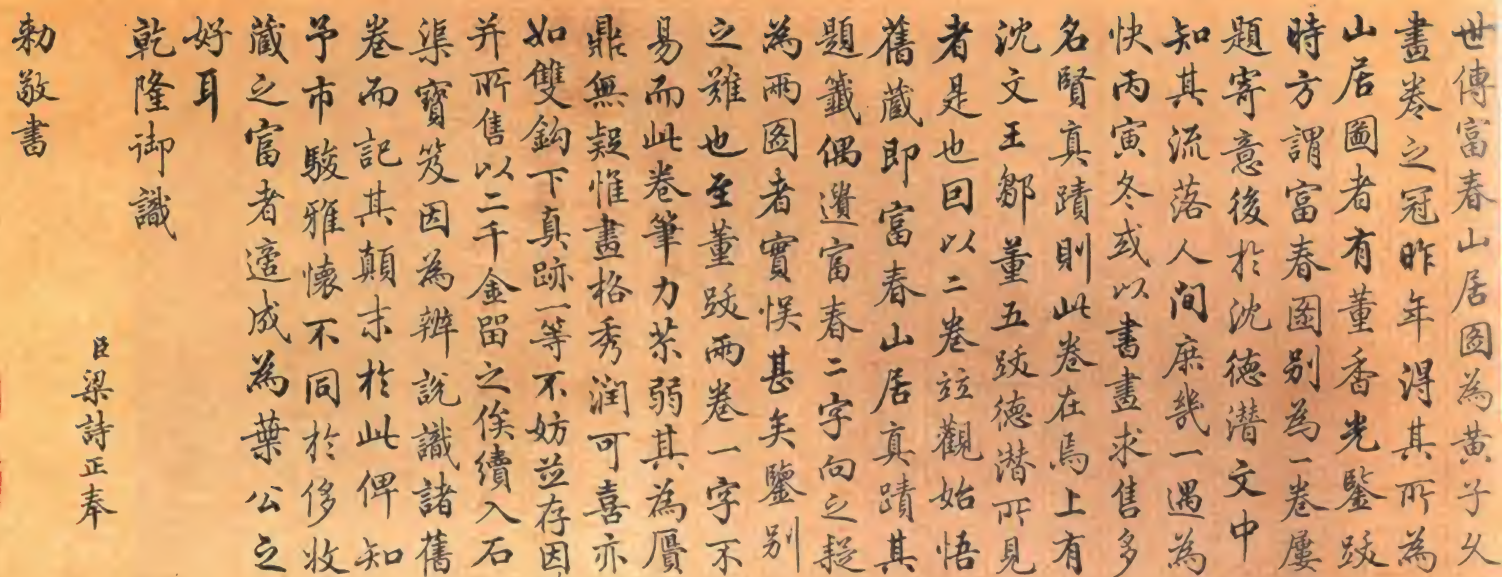 世傳富春山居圖為黃子久
畫卷之冠昨年得其所為
山居圖者有董香光鑒跋
時方謂富春圖別為一卷屢
題寄意後於沈德潛文中
知其流落人間庶幾一遇為
快丙寅冬或以書畫求售多
名賢真蹟則此卷在焉上有
沈文王鄒董五跋德潛所見
者是也回以二卷竝觀始悟
舊藏即富春山居真蹟其
題籤偶遺富春二字向之疑
為兩圖者實悞甚矣鑒別
之難也至董跋兩卷一字不
易而此卷筆力苶弱其為贋
鼎無疑惟畫格秀潤可喜亦
如雙鈎下真跡一等不妨並存因
并所售以二千金留之俟續入石
渠寶笈因為辨說識諸舊
卷而記其顛末於此俾知
予市駿雅懷不同於侈收
藏之富者適成為葉公之
好耳
乾隆御識
臣梁詩正奉
勅敬書